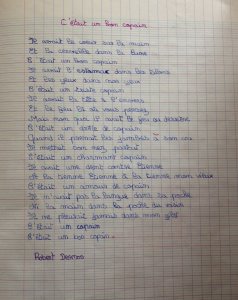 C'était un bon copain
Il avait le cœur sur la main
Et la cervelle dans la lune
C'était un bon copain
Il avait l'estomac dans les talons
Et les yeux dans nos yeux
C'était un triste copain
Il avait la tête à l'envers
Et le feu là où vous pensez
Mais non quoi il avait le feu au derrière
C'était un drôle de copain
Quand il prenait ses jambes à son cou
Il mettait son nez partout
C'était un charmant copain
Il avait une dent contre Etienne
A la tienne Etienne à la tienne mon vieux
C'était un amour de copain
Il n'avait pas la langue dans la poche
Ni la main dans la poche du voisin
Il ne pleurait jamais dans mon gilet
C'était un copain
C'était un bon copain.
Robert Desnos